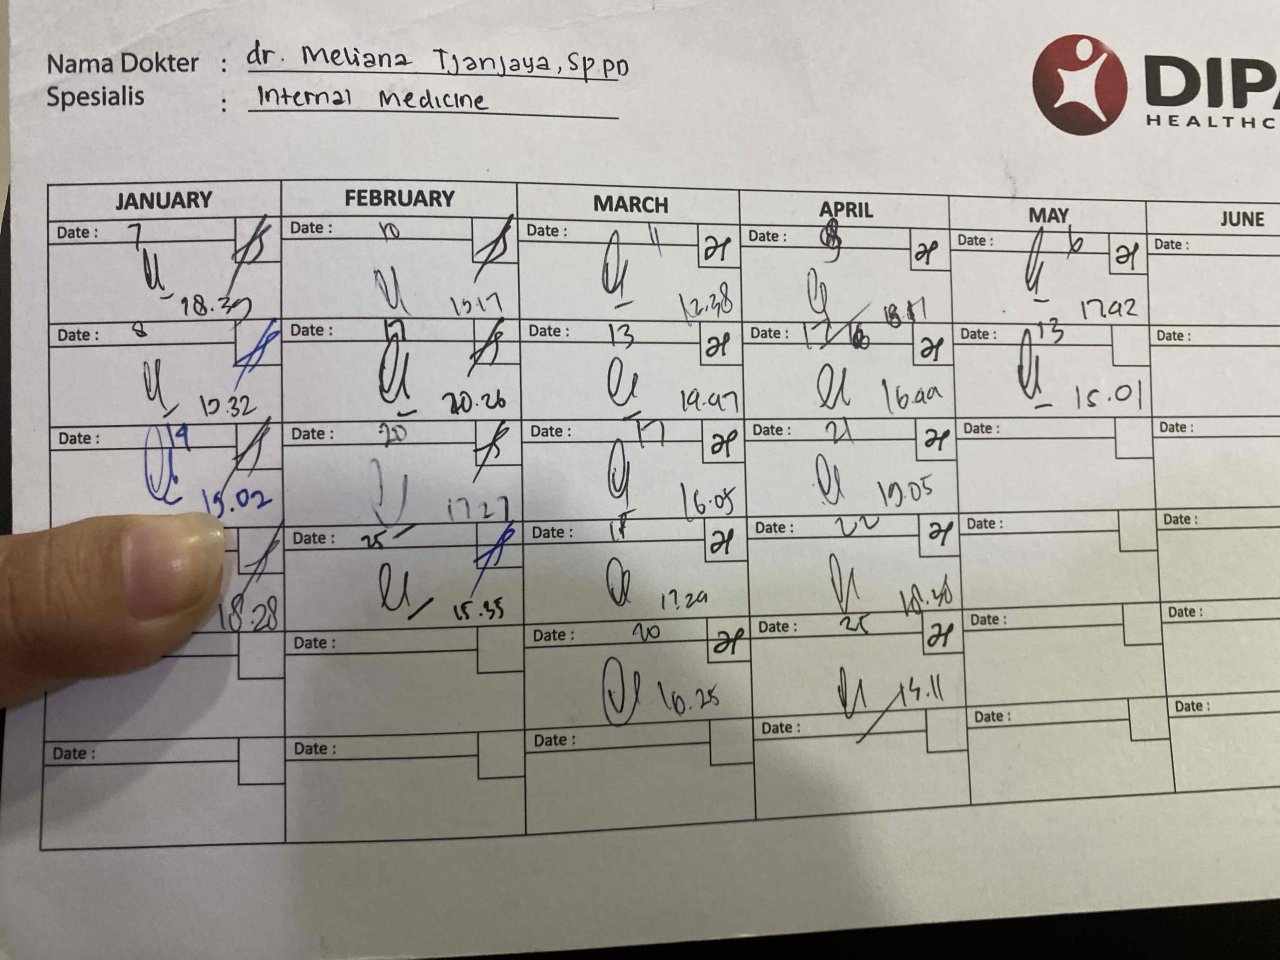 Nama Dokter : dr. Meliana Tjanjaya, Sp.PD
Spesialis : Internal Medicine
DIPA
HEALTHC
JANUARY FEBRUARY MARCH APRIL MAY JUNE
Date : 7 Date : 10 Date : 11 Date : Date : 6 Date :
18.39 15.17 12.38 18.17 17.42
Date : 8 Date : 17 Date : 13 Date : 17/16 Date : 13 Date :
15.32 20.26 19.47 16.44 15.01
Date : 14 Date : 20 Date : 17 Date : 21 Date : Date :
15.02 17.27 16.05 19.05
Date : 25 Date : 18 Date : 22 Date : Date :
18.28 15.35 17.29 18.38
Date : Date : 20 Date : 25 Date : Date :
16.25 14.11
Date : Date : Date : Date : Date : Date :